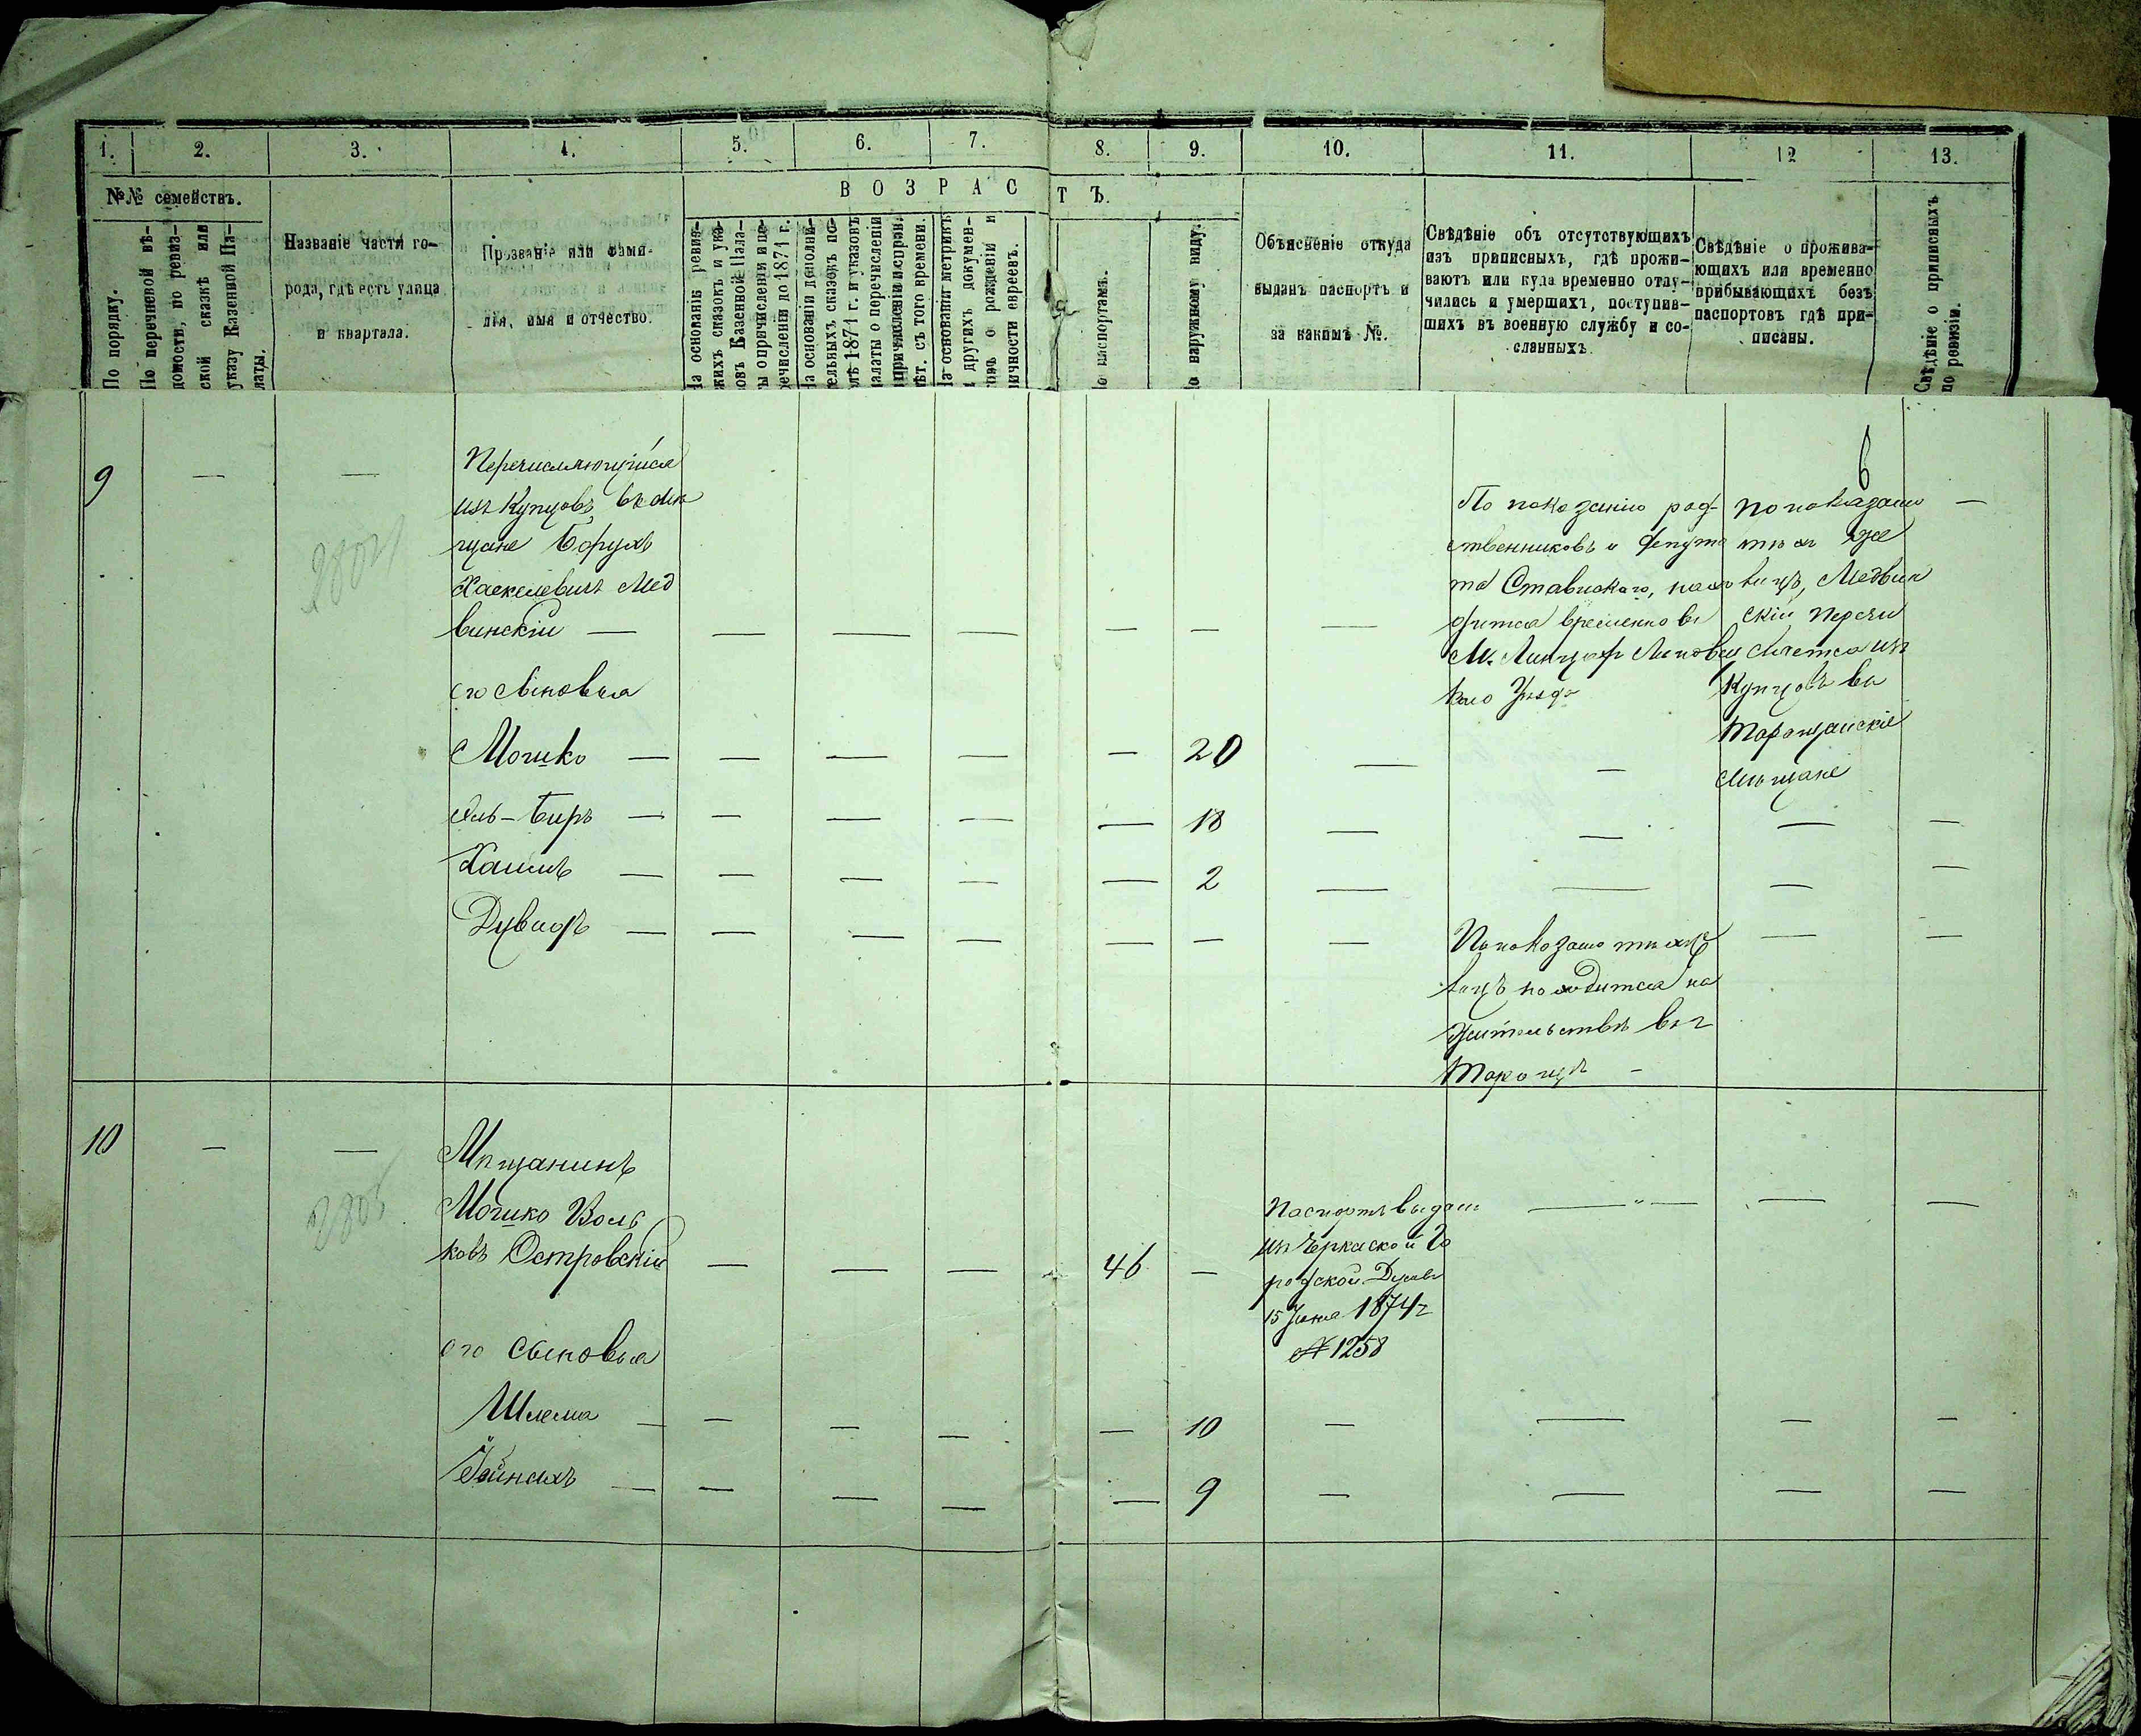 1. 2. 3. 4. 5. 6. 7. 8. 9. 10. 11. 12 13.
№№ семействъ.
По порядку.
По перечневой вѣ-
домости, по ревиз-
ской сказкѣ или
указу Казенной Па-
латы.
Названіе части го-
рода, гдѣ есть улица
и квартала.
Прозваніе или фами-
лія, имя и отчество.
ВОЗРАСТЪ.
На основаніи ревиз-
скихъ сказокъ и ука-
зовъ Казенной Пала-
ты о причисленіи и пе-
речисленіи до 1871 г.
На основаніи дополни-
тельныхъ сказокъ по-
слѣ 1871 г. и указовъ
палаты о перечисленіи
и причисленіи и справ.
лѣт. съ того времени.
На основаніи метрикъ
и другихъ докумен-
товъ о рожденіи и
личности евреевъ.
По паспортамъ.
По наружному виду.
Объясненіе откуда
выданъ паспортъ и
за какимъ №.
Свѣдѣніе объ отсутствующихъ
изъ приписныхъ, гдѣ прожи-
ваютъ или куда временно отлу-
чились и умершихъ, поступив-
шихъ въ военную службу и со-
сланныхъ.
Свѣдѣніе о прожива-
ющихъ или временно
прибывающихъ безъ
паспортовъ гдѣ при-
писаны.
Свѣдѣніе о приписныхъ
по ревизіи.
6
9 — —
Перечисляющійся
изъ Купцовъ въ мѣ
щане Борухъ
Хаскелевичъ Мед
винскій — — — — — — —
По показанію род-
ственниковъ и депута
та Ставискаго, нахо
дится временно въ
М. Линцахъ Липовец
каго Уѣзда
По показанію
тѣхъ же
лицъ, Медвин
скій перечи
сляется изъ
Купцовъ въ
Таращанскіе
Мѣщане
—
его сыновья
Мошко — — — — — 20 — —
Аль-Биръ — — — — — 18 — — — —
Хаимъ — — — — — 2 — — — —
Дувидъ — — — — — — —
По показанію тѣхъ же
лицъ находится на
жительствѣ въ г
Таращѣ —
— —
10 — —
2805
Мѣщанинъ
Мошко Воль
ковъ Островскій — — — 46 —
Паспортъ выданъ
изъ Черкаской Го
родской Думы
15 Іюня 1874 г
№ 1258
— " — — —
его сыновья
Шлема — — — — — 10 — — — —
— — — — — 9 — — — —